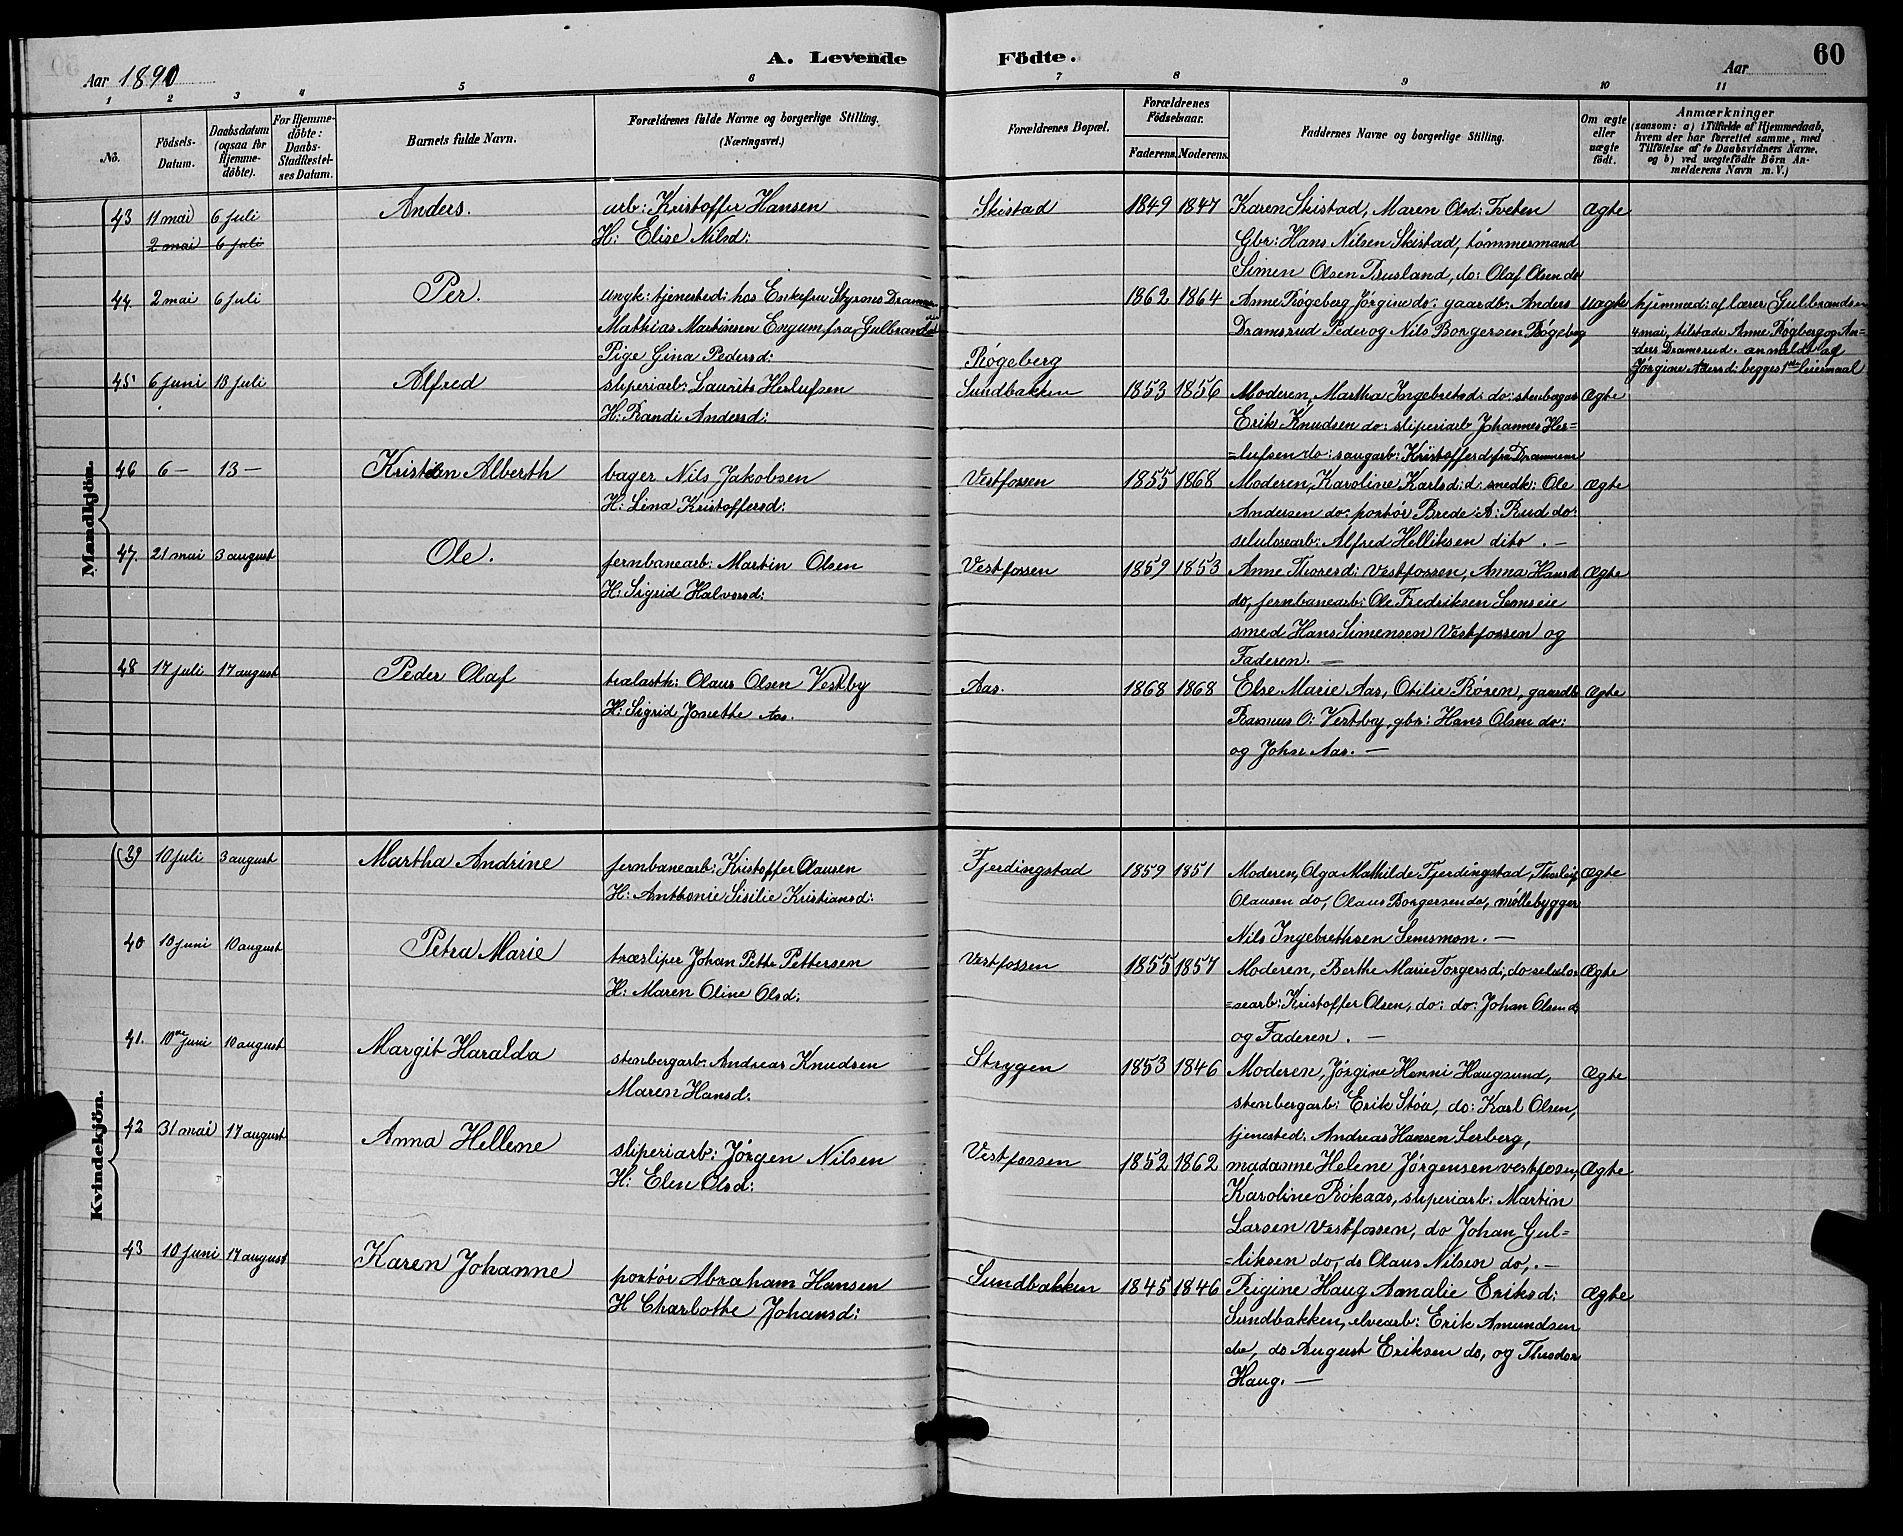 Aar 1890
A. Levende
Födte.
Aar
60
1 2 3 4 5 6 7 8 9 10 11
No.
Födsels-
Datum.
Daabsdatum
(ogsaa for
Hjemme-
döbte).
For Hjemme-
döbte:
Daabs-
Stadfæstel-
ses Datum.
Barnets fulde Navn.
Forældrenes fulde Navne og borgerlige Stilling.
(Næringsvei.)
Forældrenes Bopæl.
Forældrenes
Födselsaar.
Faderens. Moderens.
Faddernes Navne og borgerlige Stilling.
Om ægte
eller
uægte
født.
Anmærkninger
(saasom: a) i Tilfælde af Hjemmedaab,
hvem der har forrettet samme, med
Tilföielse af to Daabsvidners Navne,
og b) ved uægtefödte Börn An-
melderens Navn m. V.)
Mandkjön.
43 11 mai 6 juli Anders. arb: Kristoffer Hansen Skistad 1849 1847 Karen Skistad, Maren Olsd: Tveten Ægte
2 mai 6 juli H: Elise Nilsd: Gbr: Hans Nilsen Skistad, tömmermand
Simen Olsen Pusland, do: Olaf Olsen do
44 2 mai 6 juli Per. ungk: tjenested: hos Enkefru Styrsnes Drammen 1862 1864 Anne Røgeberg Jørgine do: gaardb: Anders uægte hjemmed: af lærer Gulbrandsen
Mathias Martinsen Engum fra Gulbrandsd Dramsrud Peder og Nils Borgersen Røgeberg 4 mai, tilstede Anne Røgberg og An-
Pige Gina Pedersd: Røgeberg ders Dramsrud. anmeldt af
Jørgine Andersd: begges 1ste leiermaal
45 6 juni 13 juli Alfred sliperiarb: Laurits Herlufsen Sundbakken 1853 1856 Moderen, Martha Ingebretsd: do: stenbegar Ægte
H: Randi Andersd: Erik Knudsen do: sliperiarb Johannes Her=
=lufsen do: saugarb: Kristoffer d fra Drammen
46 6 — 13 — Kristian Alberth bager Nils Jakobsen Vestfossen 1855 1868 Moderen, Karoline Karlsd: d: smedk: Ole Ægte
H: Lina Kristoffersd: Andersen do: portör Brede A: Rud do:
selulosearb: Alfred Helliksen dito. —
47. 21 mai 3 august Ole. jernbanearb: Martin Olsen Vestfossen 1859 1853 Anne Thoresd: Vestfossen, Anna Hansd Ægte
H: Sigrid Halvorsd: do, jernbanearb: Ole Fredriksen Semseie
smed Hans Simensen Vestfossen og
Faderen. —
48 17 juli 17 august Peder Olaf Olaus Olsen Vestby Aas. 1868 1868 Else Marie Aas, Otilie Røren, gaardb Ægte
H: Sigrid Jonette Aas. Rasmus O: Vestby, gbr: Hans Olsen do:
og Johse Aas. —
Kvindekjön.
39 10 juli 3 august Martha Andrine jernbanearb: Kristoffer Olausen Fjerdingstad 1859 1851 Moderen, Olga Mathilde Fjerdingstad, Thorleif Ægte
H: Anthonie Sisilie Kristiansd: Olausen do, Olaus Borgersen do, møllebygger
Nils Ingebrethsen Semsmon. —
40 10 juni 10 august Petra Marie træsliper Johan Petter Pettersen Vestfossen 1855 1857 Moderen, Berthe Marie Torgersd:, do selulo= Ægte
H: Maren Oline Olsd: =searb: Kristoffer Olsen, do: do: Johan Olsen do
og Faderen. —
41. 10de juni 10 august Margit Haralda stenbergarb: Andreas Knudsen Strygen 1853 1846 Moderen, Jørgine Henni Haugsund, Ægte
Maren Hansd. stenbergarb: Erik Støa, do: Karl Olsen,
tjenested: Andreas Hansen Lerberg,
42 31 mai 17 august Anna Hellene sliperiarb: Jörgen Nilsen Vestfossen 1852 1862 madamme Helene Jørgensen vestfossen, Ægte
H: Elen Olsd: Karoline Røkaas, sliperiarb: Martin
Larsen Vestfossen, do Johan Gul=
=liksen do, do Olaus Nilsen do,. —
43 10 juni 17 august Karen Johanne portör Abraham Hansen Sundbakken 1845 1846 Rigine Haug Amalie Eriksd: Ægte
H Charlotte Johansd: Sundbakken, elvearb: Erik Amundsen
do, do August Eriksen do, og Theodor
Haug. —